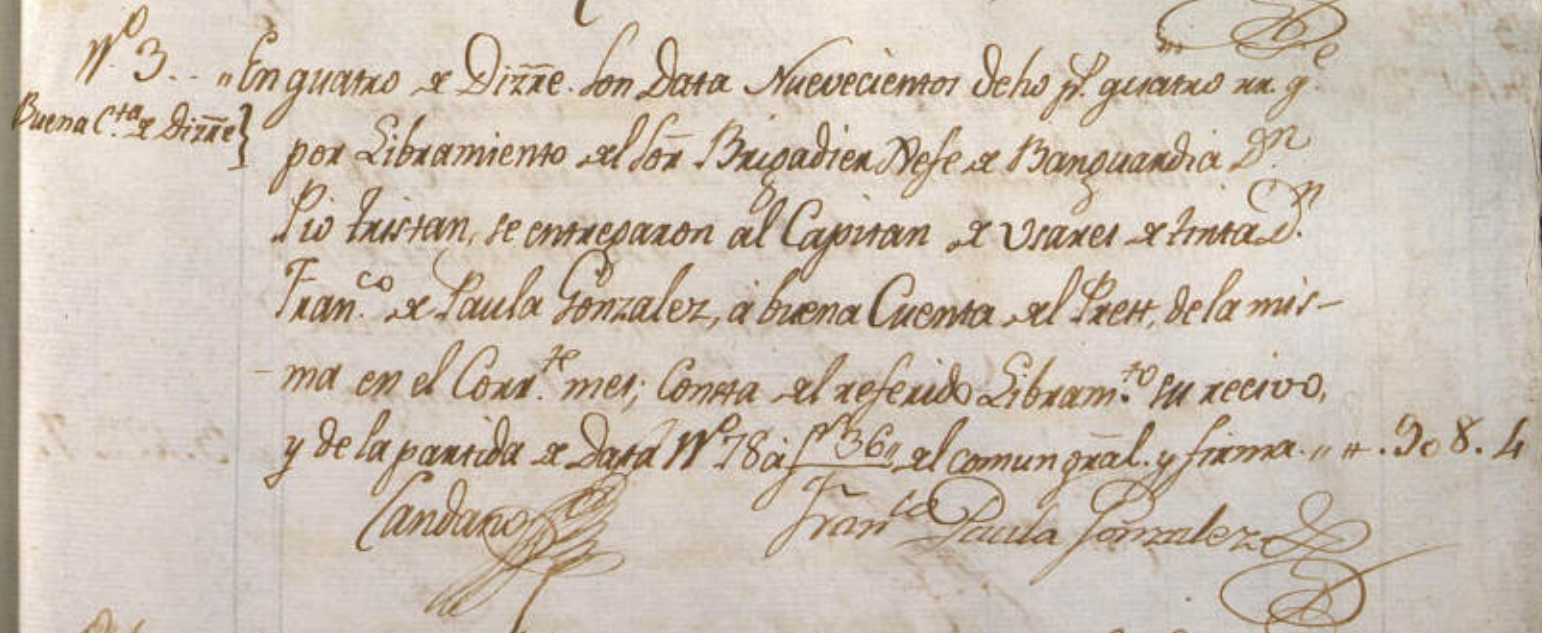 N.º 3.. „En quatro de Dizr̄e. Son Data Nuevecientos Ocho p.s quatro rr. q.e
Buena C.ta de Dizr̄e}
por Libramiento del Sōr Brigadier Xefe de Banguardia D.n
Pio Tristan, se entregaron al Capitan de Usares de tinta D.n
Fran.co de Paula Gonzalez, á buena Cuenta del Prest, de la mis-
-ma en el Corr.te mes; Consta del referido Libram.to su recivo,
y de la partida de Data N.º 78 á f.s 36„ del comun gr̄al. y firma. „ „ . 908. 4
Candano
Fran.co Paula Gonzalez